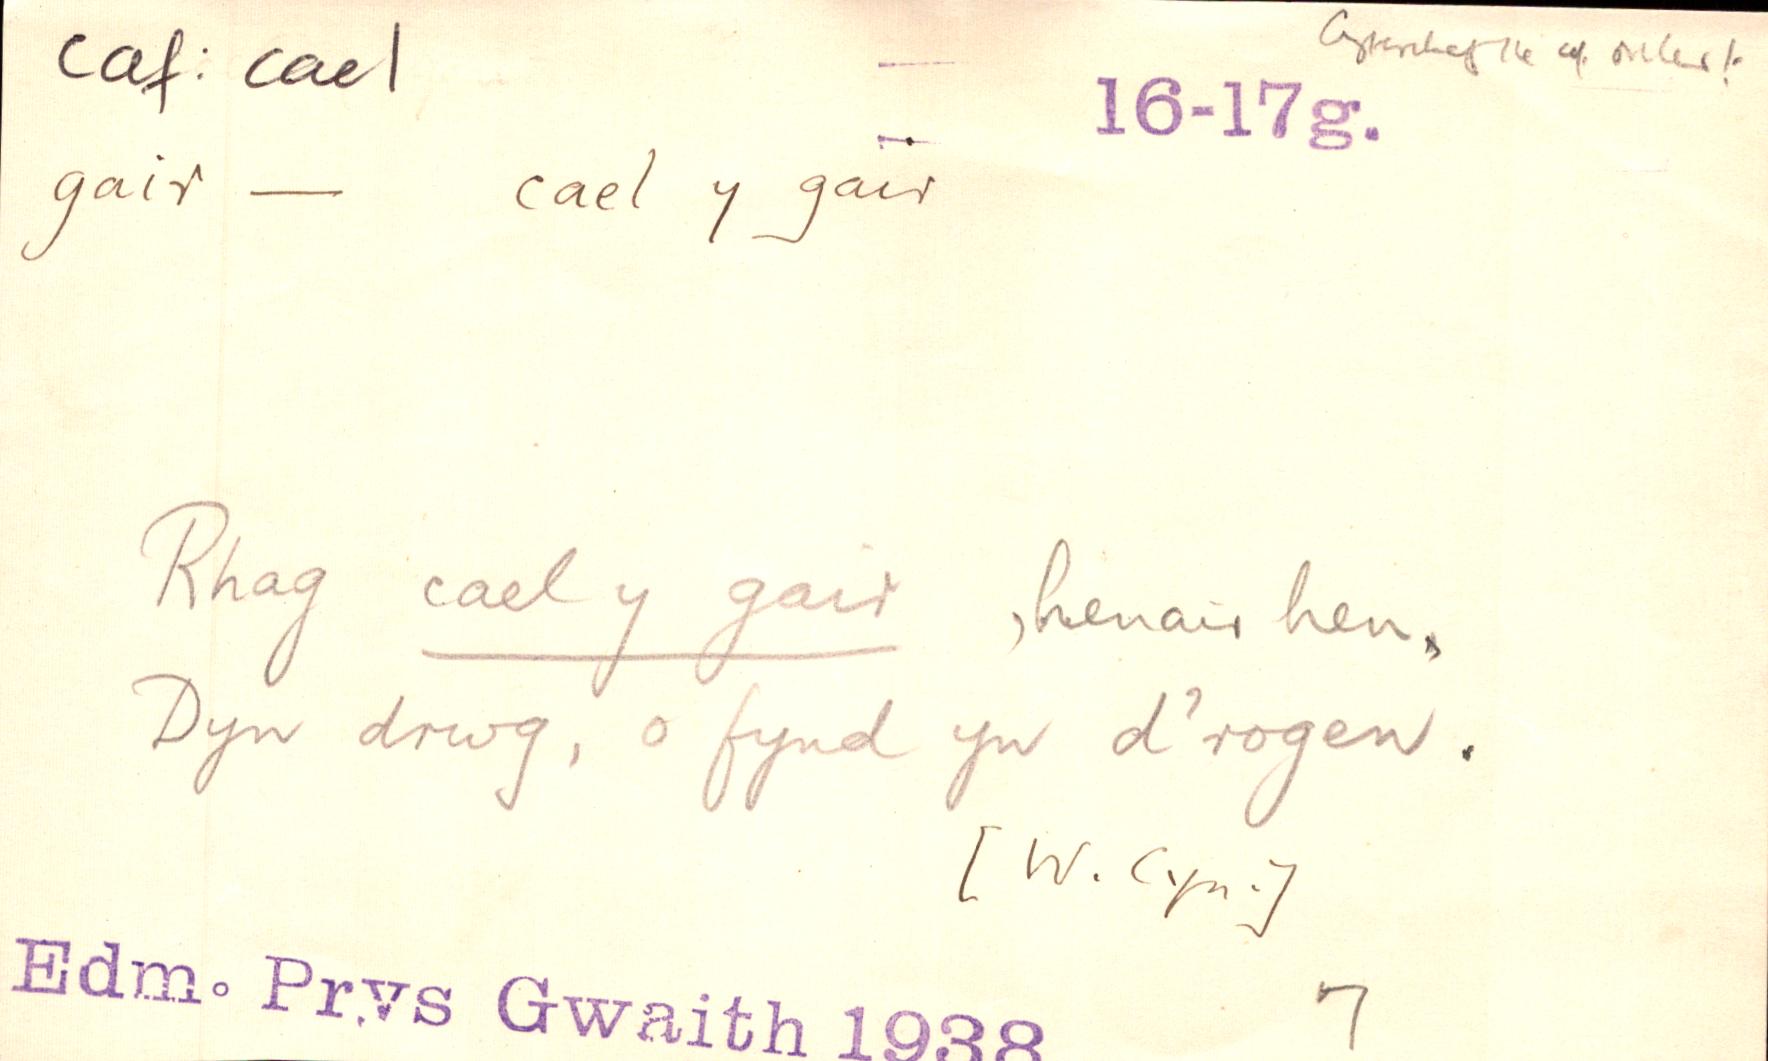 caf: cael
16-17g.
gair — cael y gair
Rhag cael y gair , henair hen,
Dyn drwg, o fynd yn d'rogen.
[W. Cyn.]
Edm. Prys Gwaith 1938
7